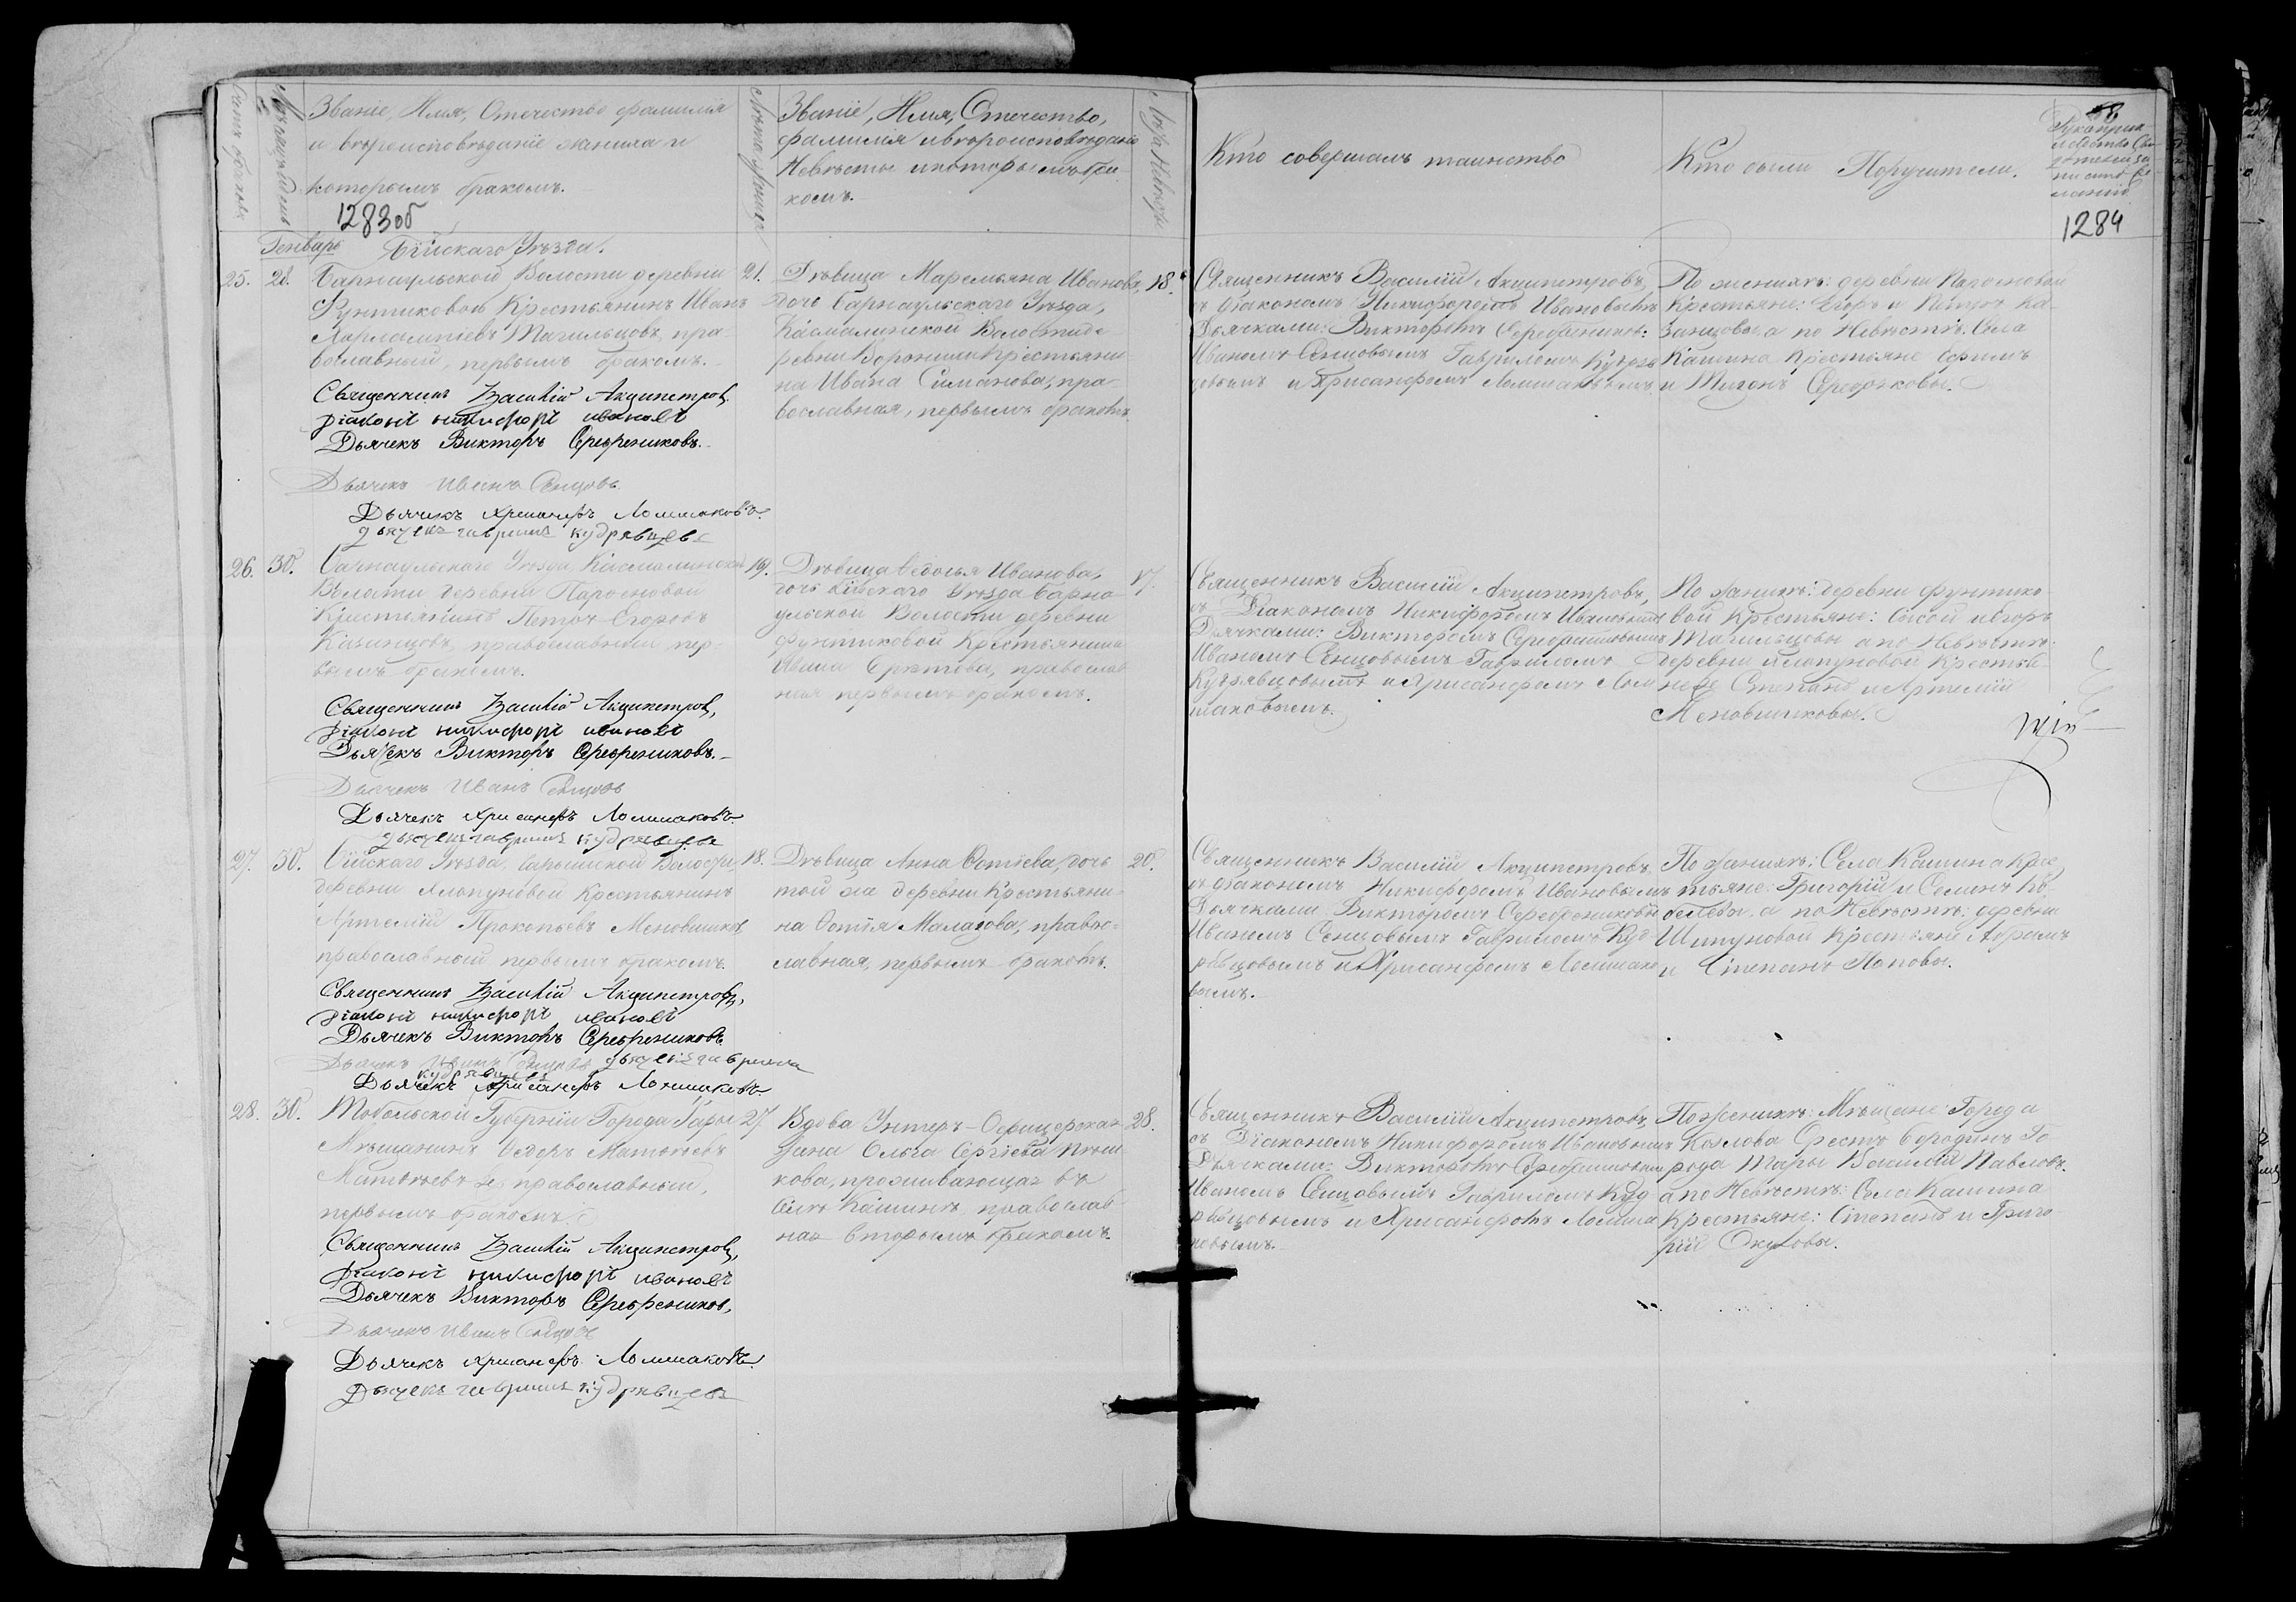 Счетъ браковъ
Мѣсяцъ и день
Званіе, Имя, Отечество фамилія
и вѣроисповѣданіе жениха и
которымъ бракомъ.
1283об
Лѣта жениха
Званіе, Имя, Отечество,
фамилія и вѣроисповѣданіе
Невѣсты и которымъ бра
комъ.
Лѣта Невѣсты
Кто совершалъ таинство
Кто были Поручители.
Рукоприк
1284
Генварь Бійскаго Уѣзда.
25. 28. Барнаульской Волости деревни
Фунтиковой Крестьянинъ Иванъ
Харлампіевъ Тагильцовъ, пра-
вославный, первымъ бракомъ.
Священникъ Василій Акципетровъ,
Діаконъ Никифоръ Ивановъ
Дьячекъ Викторъ Серебрениковъ.
Дьячекъ Иванъ Сенцовъ.
Дьячекъ Хрисанфъ Ломшаковъ.
Дьячекъ Гавриилъ Кудрявцевъ
21. Дѣвица Маремьяна Иванова,
дочь Барнаульскаго Уѣзда,
Касмалинской Волости де
ревни Воронихи Крестьяни
на Ивана Симанова, пра-
вославная, первымъ бракомъ.
18.
Священникъ Василій Акципетровъ,
съ діакономъ Никифоромъ Ивановымъ
Дьячками: Викторомъ Серебреников:
Иваномъ Сенцовымъ Гавриломъ Кудряв
цовымъ и Хрисанфомъ Ломшаковымъ
По женихѣ: деревни Паросновой
Крестьяне: Егоръ и Петръ Ка-
занцовы, а по Невѣстѣ: Села
Кашина Крестьяне Ефимъ
и Тихонъ
26. 30. Барнаульскаго Уѣзда, Касмалинской
Волости, деревни Паросновой
Крестьянинъ Петръ Егоровъ
Казанцовъ, православный пер-
вымъ бракомъ.
Священникъ Василій Акципетровъ,
Діаконъ Никифоръ Ивановъ
Дьячекъ Викторъ Серебрениковъ.
Дьячекъ Иванъ Сенцовъ
Дьячекъ Хрисанфъ Ломшаковъ.
Дьячекъ Гавриилъ Кудрявцевъ
19. Дѣвица Ѳедосья Иванова,
дочь Бійскаго Уѣзда Барна
ульской Волости деревни
Фунтиковой Крестьянина
Ивана православ
ная первымъ бракомъ.
17.
Священникъ Василій Акципетровъ,
съ Діакономъ Никифоромъ Ивановымъ
Дьячками: Викторомъ Серебрениковымъ
Иваномъ Сенцовымъ Гавриломъ
Кудрявцовымъ и Хрисанфомъ Лом
шаковымъ.
По женихѣ: деревни Фунтико
вой Крестьяне: Сысой и Егоръ
Тагильцовы а по Невѣстѣ:
деревни Хлопуновой Крестья
не Степанъ и Артемій
Меновшиковы.
27. 30. Бійскаго Уѣзда, Барышской Волости,
деревни Хлопуновой Крестьянинъ
Артемій Прокопьевъ Меновшиковъ,
православный первымъ бракомъ.
Священникъ Василій Акципетровъ,
Діаконъ Никифоръ Ивановъ
Дьячекъ Викторъ Серебрениковъ
Дьячекъ Иванъ Сенцовъ Дьячекъ Гавриилъ
Кудрявцевъ
Дьячекъ Хрисанфъ Ломшаковъ.
18. Дѣвица Анна Фотіева, дочь
той же деревни Крестьяни-
на Фотія Малахова, право-
славная, первымъ бракомъ.
20.
Священникъ Василій Акципетровъ,
съ діакономъ Никифоромъ Ивановымъ
Дьячками Викторомъ Серебрениковы
Иваномъ Сенцовымъ Гавриломъ Куд
рявцовымъ и Хрисанфомъ Ломшако
вымъ.
По женихѣ: Села Кашина Крес
тьяне: Григорій и Семенъ Ко-
белевы, а по Невѣстѣ: деревни
Шипуновой Крестьяне Абрамъ
и Степанъ Поповы.
28. 30. Тобольской Губерніи Города Тары
Мѣщанинъ Ѳедоръ Матвѣевъ
Матвѣевъ православный,
первымъ бракомъ.
Священникъ Василій Акципетровъ,
Діаконъ Никифоръ Ивановъ
Дьячекъ Викторъ Серебрениковъ,
Дьячекъ Иванъ Сенцовъ
Дьячекъ Хрисанфъ Ломшаковъ.
Дьячекъ Гавриилъ Кудрявцевъ
27. Вдова Унтеръ-Офицерская
жена Ольга Сергіева
кова, проживающая въ
Селѣ Кашинѣ, православ
ная вторымъ бракомъ.
28.
Священникъ Василій Акципетровъ,
съ Діакономъ Никифоромъ Ивановымъ
Дьячками: Викторомъ Серебрениковым
Иваномъ Сенцовымъ Гавриломъ Куд
рявцовымъ и Хрисанфомъ Ломша
ковымъ.
По Женихѣ: Мѣщане: Города
Козлова Орестъ Бородинъ Го
рода Тары Василій Павловъ.
а по Невѣстѣ: Села Кашина
Крестьяне: Степанъ и Григо
рій Окуловы.